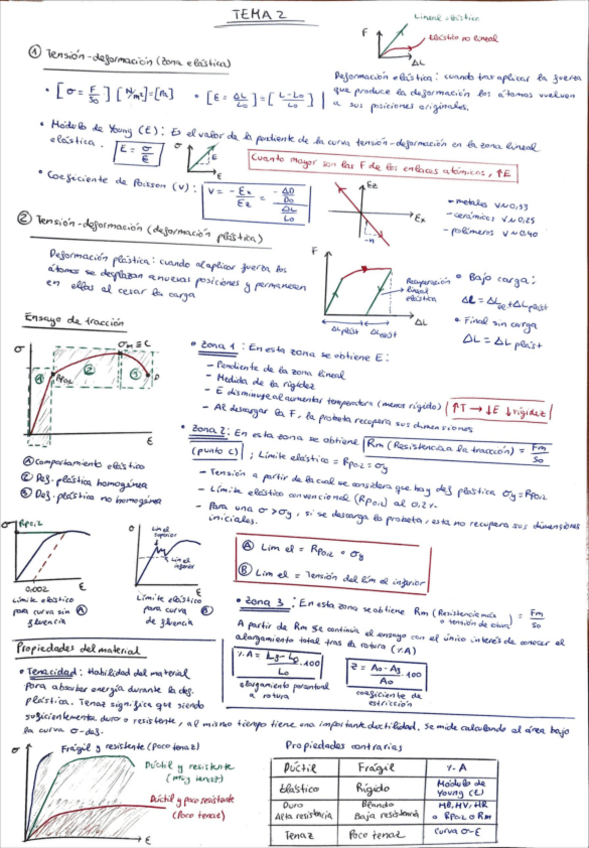 TEMA 2
Lineal elástico
F
Elástico no lineal
ΔL
① Tensión-deformación (zona elástica)
Deformación elástica: cuando tras aplicar la fuerza
que produce la deformación los átomos vuelven
a sus posiciones originales.
• [σ = F/S₀] [N/m²]=[Pa] • [ε = ΔL/L₀]=[L-L₀/L₀]
• Módulo de Young (E): Es el valor de la pendiente de la curva tensión-deformación en la zona lineal
elástica. E = σ/ε
σ
E
ε
Cuanto mayor son las F de los enlaces atómicos, ↑E
• Coeficiente de Poisson (ν): ν = -εx/εz = -ΔD/D₀ / ΔL/L₀
εz
εx
- metales ν≈0,33
- cerámicos ν≈0,25
- polímeros ν≈0,40
② Tensión-deformación (deformación plástica)
Deformación plástica: cuando al aplicar fuerza los
átomos se desplazan a nuevas posiciones y permanecen
en ellas al cesar la carga
F
Recuperación
lineal
elástica
ΔL plást
ΔL
• Bajo carga:
ΔL = ΔLel + ΔL plást
• Final sin carga
ΔL = ΔL plást
Ensayo de tracción
σ
σm ≡ C
Rp0,2
①
②
③
D
ε
① Comportamiento elástico
② Def. plástica homogénea
③ Def. plástica no homogénea
• Zona 1: En esta zona se obtiene E:
- Pendiente de la zona lineal
- Medida de la rigidez
- E disminuye al aumentar temperatura (menos rígido) ↑T → ↓E ↓rigidez
- Al descargar la F, la probeta recupera sus dimensiones
• Zona 2: En esta zona se obtiene Rm (Resistencia a la tracción) = Fm/S₀
(punto C) ; Límite elástico = Rp0,2 = σy
- Tensión a partir de la cual se considera que hay def plástica σy = Rp0,2
- Límite elástico convencional (Rp0,2) al 0,2%
- Para una σ > σy, si se descarga la probeta, esta no recupera sus dimensiones
iniciales.
σ
Rp0,2
0,002
ε
Límite elástico
para curva sin Ⓐ
fluencia
σ
Lím el
superior
Lím el
inferior
ε
Límite elástico
para curva Ⓑ
de fluencia
Ⓐ Lim el = Rp0,2 = σy
Ⓑ Lim el = Tensión del lím el inferior
• Zona 3: En esta zona se obtiene Rm = Fm/S₀
A partir de Rm se continúa el ensayo con el único interés de conocer el
alargamiento total tras la rotura (% A)
%A = Lf-L₀/L₀ · 100
alargamiento porcentual
a rotura
Z = A₀-Af/A₀ · 100
coeficiente de
estricción
Propiedades del material
• Tenacidad: Habilidad del material
para absorber energía durante la def.
plástica. Tenaz significa que siendo
suficientemente duro o resistente, al mismo tiempo tiene una importante ductilidad. Se mide calculando el área bajo
la curva σ-def.
σ
Frágil y resistente (Poco tenaz)
Dúctil y resistente
(muy tenaz)
Dúctil y poco resistente
(Poco tenaz)
ε
Propiedades contrarias
Dúctil Frágil %A
Elástico Rígido Módulo de Young (E)
Duro Blando HB, HV, HR
Alta resistencia Baja resistencia o Rp0,2 o Rm
Tenaz Poco tenaz Curva σ-ε